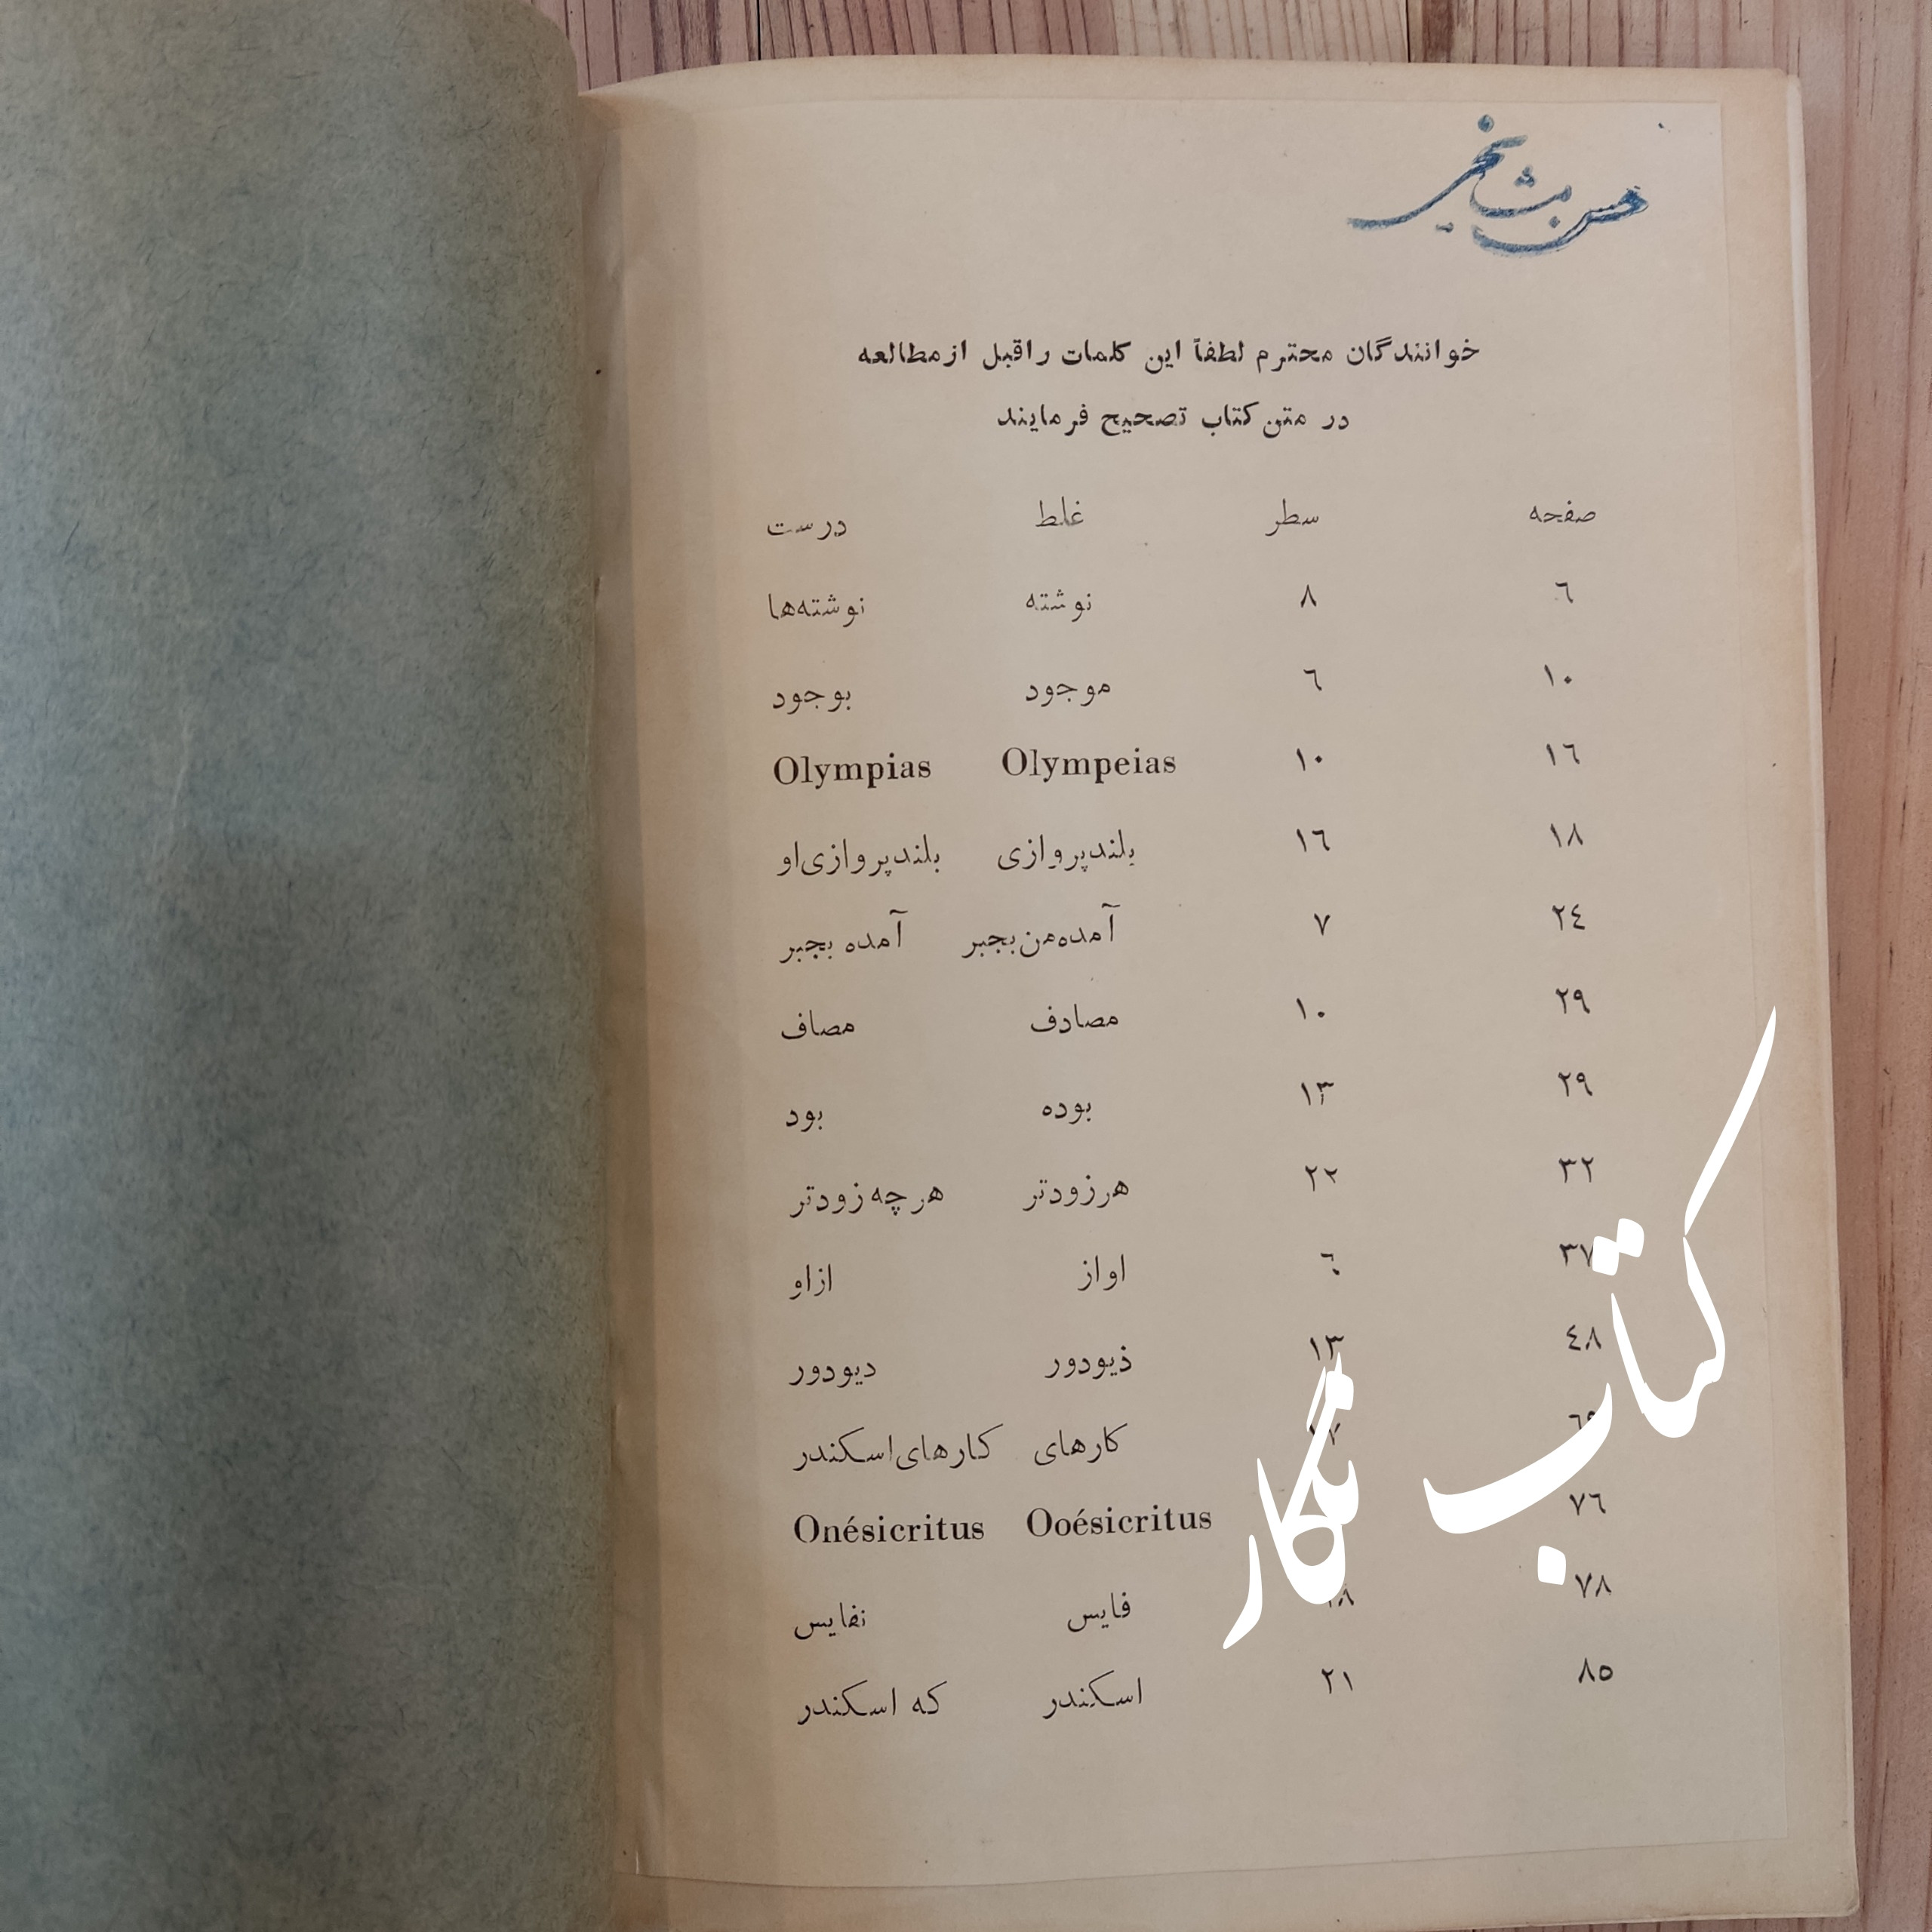 حسن مشایخی
خوانندگان محترم لطفاً این کلمات را قبل از مطالعه
در متن کتاب تصحیح فرمایند
صفحه سطر غلط درست
٦ ٨ نوشته نوشته‌ها
١٠ ٦ موجود بوجود
١٦ ١٠ Olympeias Olympias
١٨ ١٦ بلندپروازی بلندپروازی‌او
٢٤ ٧ آمده‌من‌بجبر آمده بجبر
٢٩ ١٠ مصادف مصاف
٢٩ ١٣ بوده بود
٣٢ ٢٢ هرزودتر هرچه زودتر
٣٧ ٦ اواز ازاو
٤٨ ١٣ ذیودور دیودور
٦٩ کارهای کارهای‌اسکندر
٧٦ Ooésicritus Onésicritus
٧٨ فایس نفایس
٨٥ ٢١ اسکندر که اسکندر
کتاب نگار